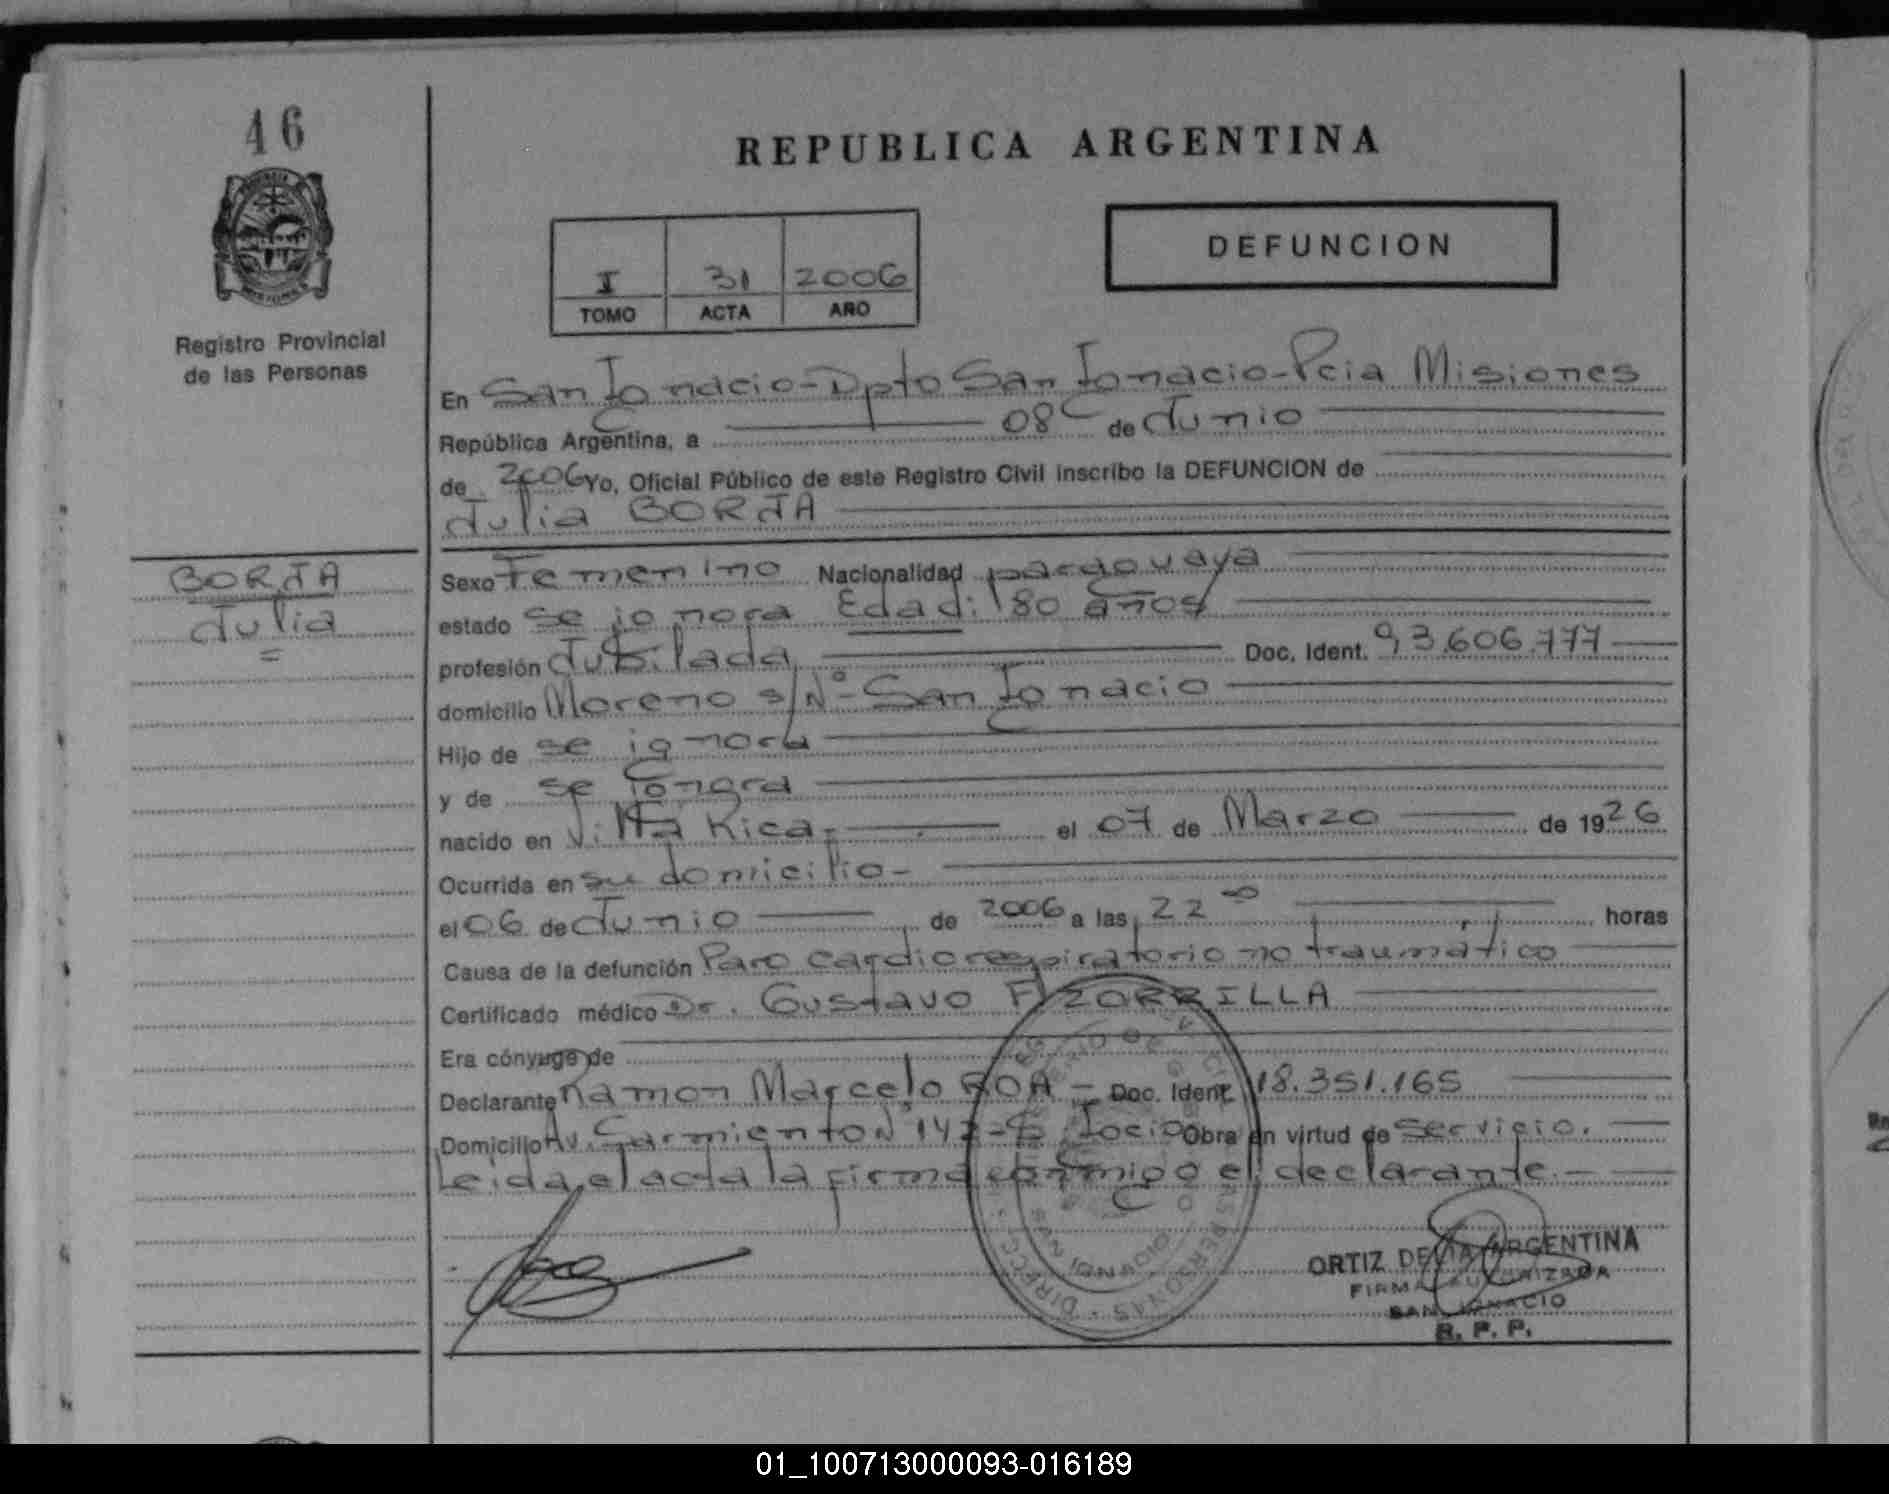 46
REPUBLICA ARGENTINA
DEFUNCION
I 31 2006
TOMO ACTA AÑO
Registro Provincial
de las Personas
En San Ignacio-Dpto San Ignacio-Pcia Misiones
República Argentina, a 08 de Junio
de 2006 Yo, Oficial Público de este Registro Civil inscribo la DEFUNCION de
Julia BORJA
BORJA
Julia
Sexo Femenino Nacionalidad paraguaya
estado se ignora Edad: 80 años
profesión Jubilada Doc. Ident. 93.606.777
domicilio Moreno s/Nº- San Ignacio
Hijo de se ignora
y de se ignora
nacido en Villa Rica- el 07 de Marzo de 1926
Ocurrida en su domicilio-
el 06 de Junio de 2006 a las 22 00 horas
Causa de la defunción Paro cardiorrespiratorio no traumático
Certificado médico Dr. Gustavo F. ZORRILLA
Era cónyuge de
Declarante Ramon Marcelo ROA - Doc. Ident. 18.351.165
Domicilio Av. Sarmiento Nº Obra en virtud de servicio.
Leida el acta la firma conmigo el declarante.-
ORTIZ DELIA ARGENTINA
FIRMA AUTORIZADA
SAN IGNACIO
R. P. P.
01_100713000093-016189